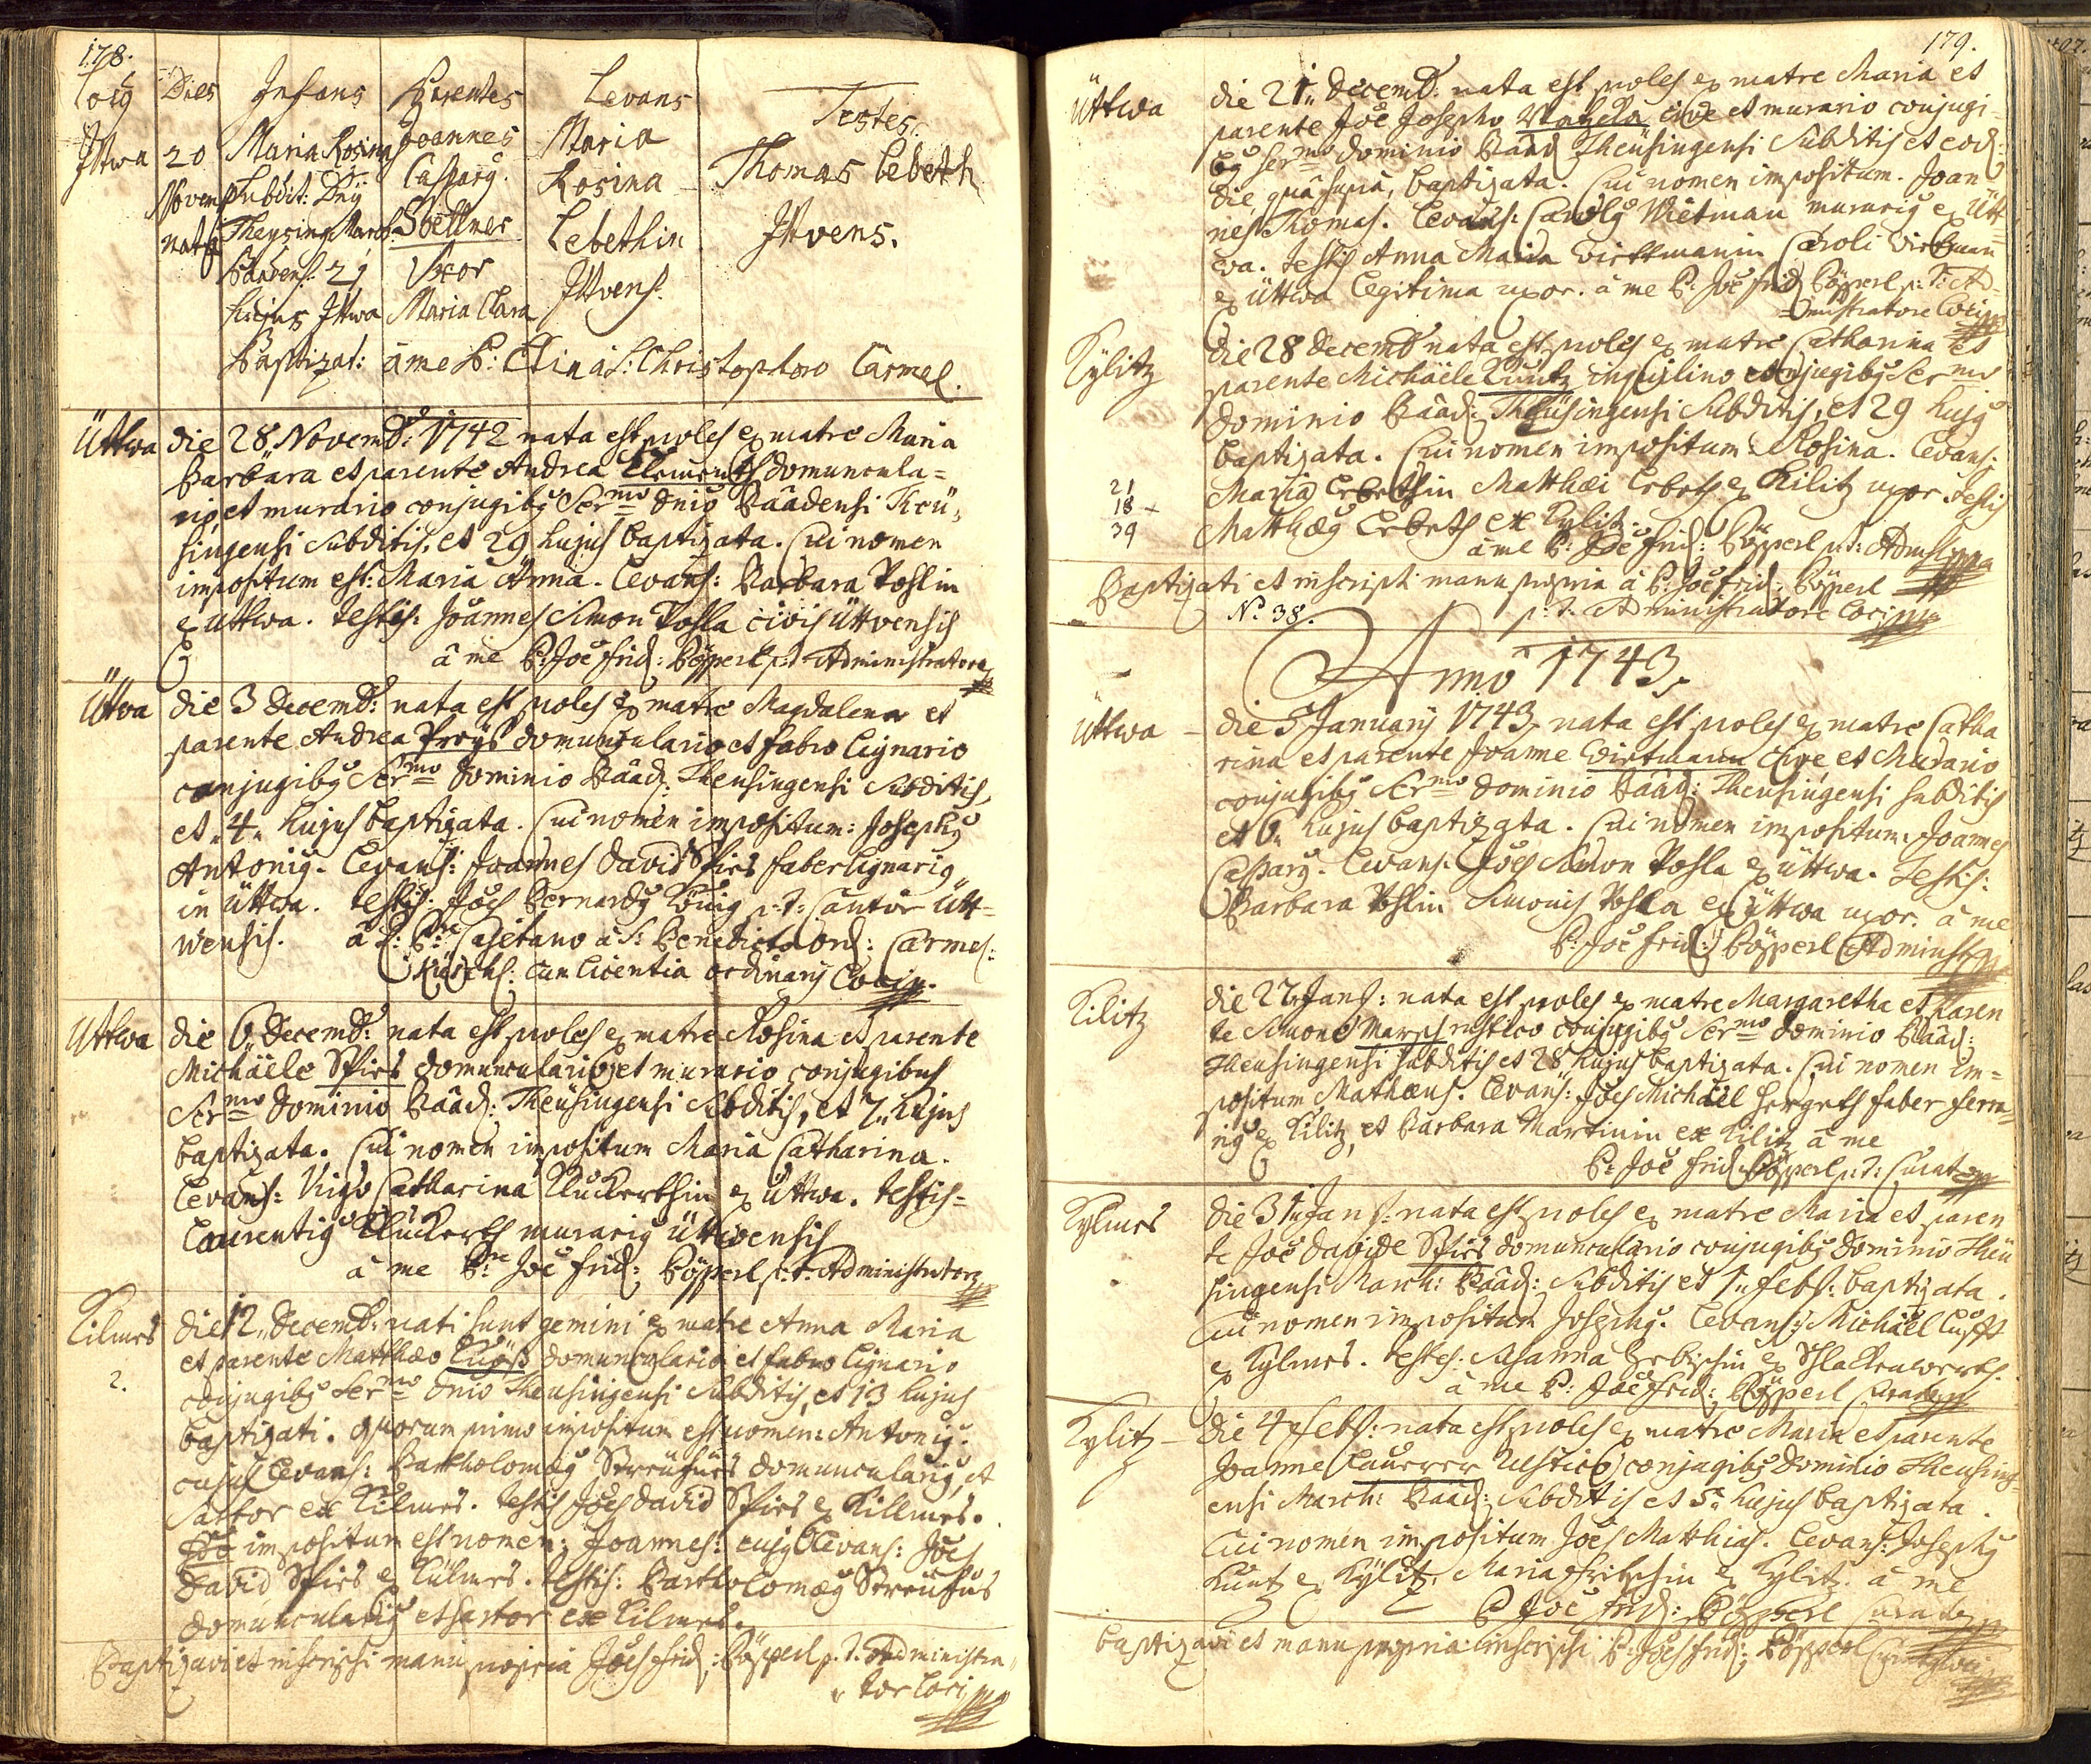 178.
Locg Dies Infans Parentes Levans Testes.
Ittwa 20 Maria Rosina Joannes Maria Thomas Lebeth
Novemb Subdit: Dnÿ Casparg. Rosina Ittvens.
nata Theysing March. Lebethin
Badens: 21 Uxor Ittvens:
hujus Ittwa Maria Clara
Baptizat: â me P: à S: Christophoro Carmel.
Üttwa die 28 Novemb: 1742 nata est proles ex matre Maria
Barbara et parente Andrea Clement domuncula=
rio, et murario conjugibg Ser mo Dnio Bâadensi Theü=
singensi Subditis, et 29 hujus baptizata. Cui nomen
impositum est: Maria Anna. Levans: Barbara Pohlin
ex Uttwa. testis: Joannes Simon Pohla civis Üttvensis
â me P: Joê Frid: Pöpperl p:t: Administratore
Üttwa die 3 Decemb: nata est proles ex matre Magdalena et
parente Andrea domunculario et fabro lignario
conjugibg Ser mo Dominio Bâad: Theusingensi Subditis,
et 4 hujus baptizata. Cui nomen impositum: Josephg
Antonig. Levans: Joannes David Spies faber lignarig
in Üttwa. testis: Joês Bernardg König p:t: Cantor Ütt=
wensis. â R: P: Cajetano â S: Benedicto Ord: Carmel:
cum licentia ordinarÿ Loci
Uttwa die 6 Decemb: nata est proles ex matre Rosina et parente
Michäele Spies domunculario et murario conjugibus
Ser mo Dominio Bâad: Theüsingensi Subditis, et 7 hujus
baptizata. Cui nomen impositum Maria Catharina.
Levans: Virgo Catharina Kluckerthin ex Üttwa. testis=
Laurentig Kluckerth murarig Üttwensis
â me P: Joê Frid: Pöpperl p:t: Administratore
Kilmes die 12 Decemb: nati sunt gemini ex matre Anna Maria
et parente Matthæo domunculario et fabro lignario
2. conjugibg Ser mo Dnio Theusingensi Subditis, et 13 hujus
baptizati. quorum primo impositum est nomen: Antonig.
cujus Levans: Bartholomæg Streüfües domuncularig, et
Sartor ex Kilmes. testis Joês David Spies ex Killmes.
2do impositum est nomen: Joannes: cujg Levans: Joês
David Spies ex Külmes. testis: Bartholomæg Streüfüs
domuncularig et Sartor ex Kilmes.
Baptizavi et inscripsi manu propria Joês Frid: Pöpperl p.t. Administra=
tor Loci
179.
Üttwa die 21 Decemb: nata est proles ex matre Maria et
parente Joê Josepho cive et murario conjugi=
bg Ser mo Dominio Bâad Theüsingensi Subditis et eod:
die, quâ supra, baptizata. Cui nomen impositum. Joan=
nes Thomas. Levans: Carolg Wietman murarig ex Ütt=
wa. testis Anna Maria Wiettmanin Caroli Wiettman
ex Üttwa legitima uxor. â me P: Joê Frid Pöpperl p:t: Ad=
ministratore Loci
Kÿlitz die 28 Decemb nata est proles ex matre Catharina et
parente Michäele Kuntz inquilino conjugibg Ser mo
Dominio Bâad: Theüsingensi Subditis, et 29 hujg
baptizata. Cui nomen impositum Rosina. Levans:
21 Maria Lebethin Matthæi Lebeth ex Kilitz uxor. testis
18 Matthæg Lebeth ex Kylitz.
39 â me P: Joê Frid: Pöpperl p:t: Adminstr
Baptizati et inscripti manu propria â P: Joê Frid: Pöpperl
No. 38. p:t: Administratore Loci
Anno 1743.
Uttwa die 5 Januarÿ 1743 nata est proles ex matre Catha
rina et parente Joanne Wietmann Cive et Murario
conjugibg Ser mo Dominio Bâad: Theusingensi subditis
et 6 hujus baptizata. Cui nomen impositum. Joannes
Casparg. Levans: Joês Simon Pohla ex üttwa. Testis:
Barbara Pohlin Simonis Pohla ex üttwa uxor. â me
P: Joê Frid: Pöpperl Adminstr
Kilitz die 27 Jan: nata est proles ex matre Margaretha et paren
te Simone rustico conjugibg Ser mo Dominio Bâad:
Theusingensi subditis et 28 hujus baptizata. Cui nomen im=
positum Mathæus. Levans: Joês Michäel Hergeth faber ferra=
rig ex Kilitz, et Barbara Martinin ex Kilitz â me
P: Joê Frid: Pöpperl p:t: Curato
Kylmes die 31 Jan: nata est proles ex matre Maria et paren
te Joê Davide Spies domunculario conjugibg Dominio Theü
singensi March: Bâad: Subditis et 1 Feb: baptizata.
Cui nomen impositum Josephg. Levans: Michäel
ex Kylmes. testes: ex Schlakenwerth.
â me P: Joê Frid: Pöpperl Curato
Kylitz die 4 Feb: nata est proles ex matre Maria et parente
Joanne Lauerer rustico conjugibg Dominio Theusing=
ensi March: Bâad: Subditis et 5 hujus baptizata.
Cui nomen impositum Joês Matthias. Levans: Josephg
Kuntz ex Kÿlitz, Maria Fritschin ex Kylitz. â me
P Joê Frid: Pöpperl Curato
baptizavi et manu propria inscripsi P: Joês Frid: Pöpperl